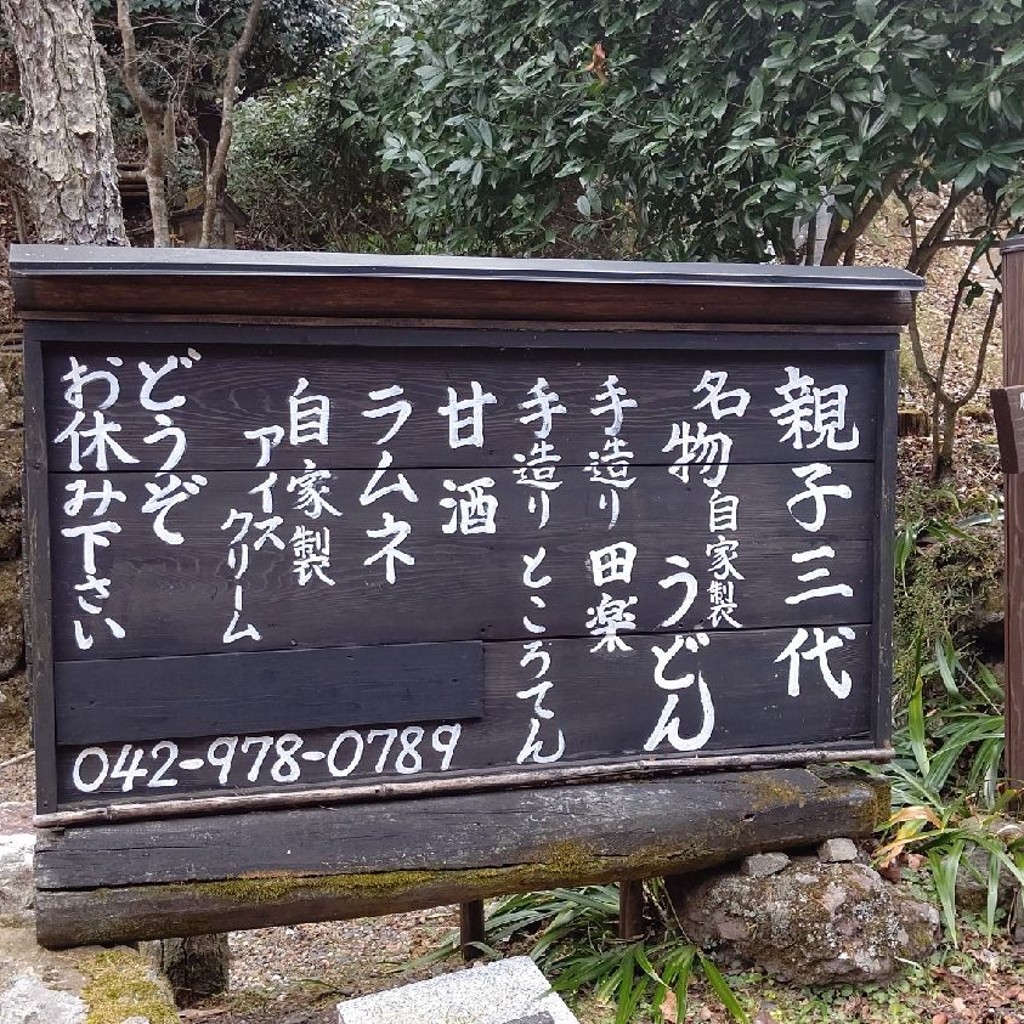 親子三代
名物自家製うどん
手造り田楽
手造りところてん
甘酒
ラムネ
自家製
アイス
クリーム
どうぞ
お休み下さい
042-978-0789